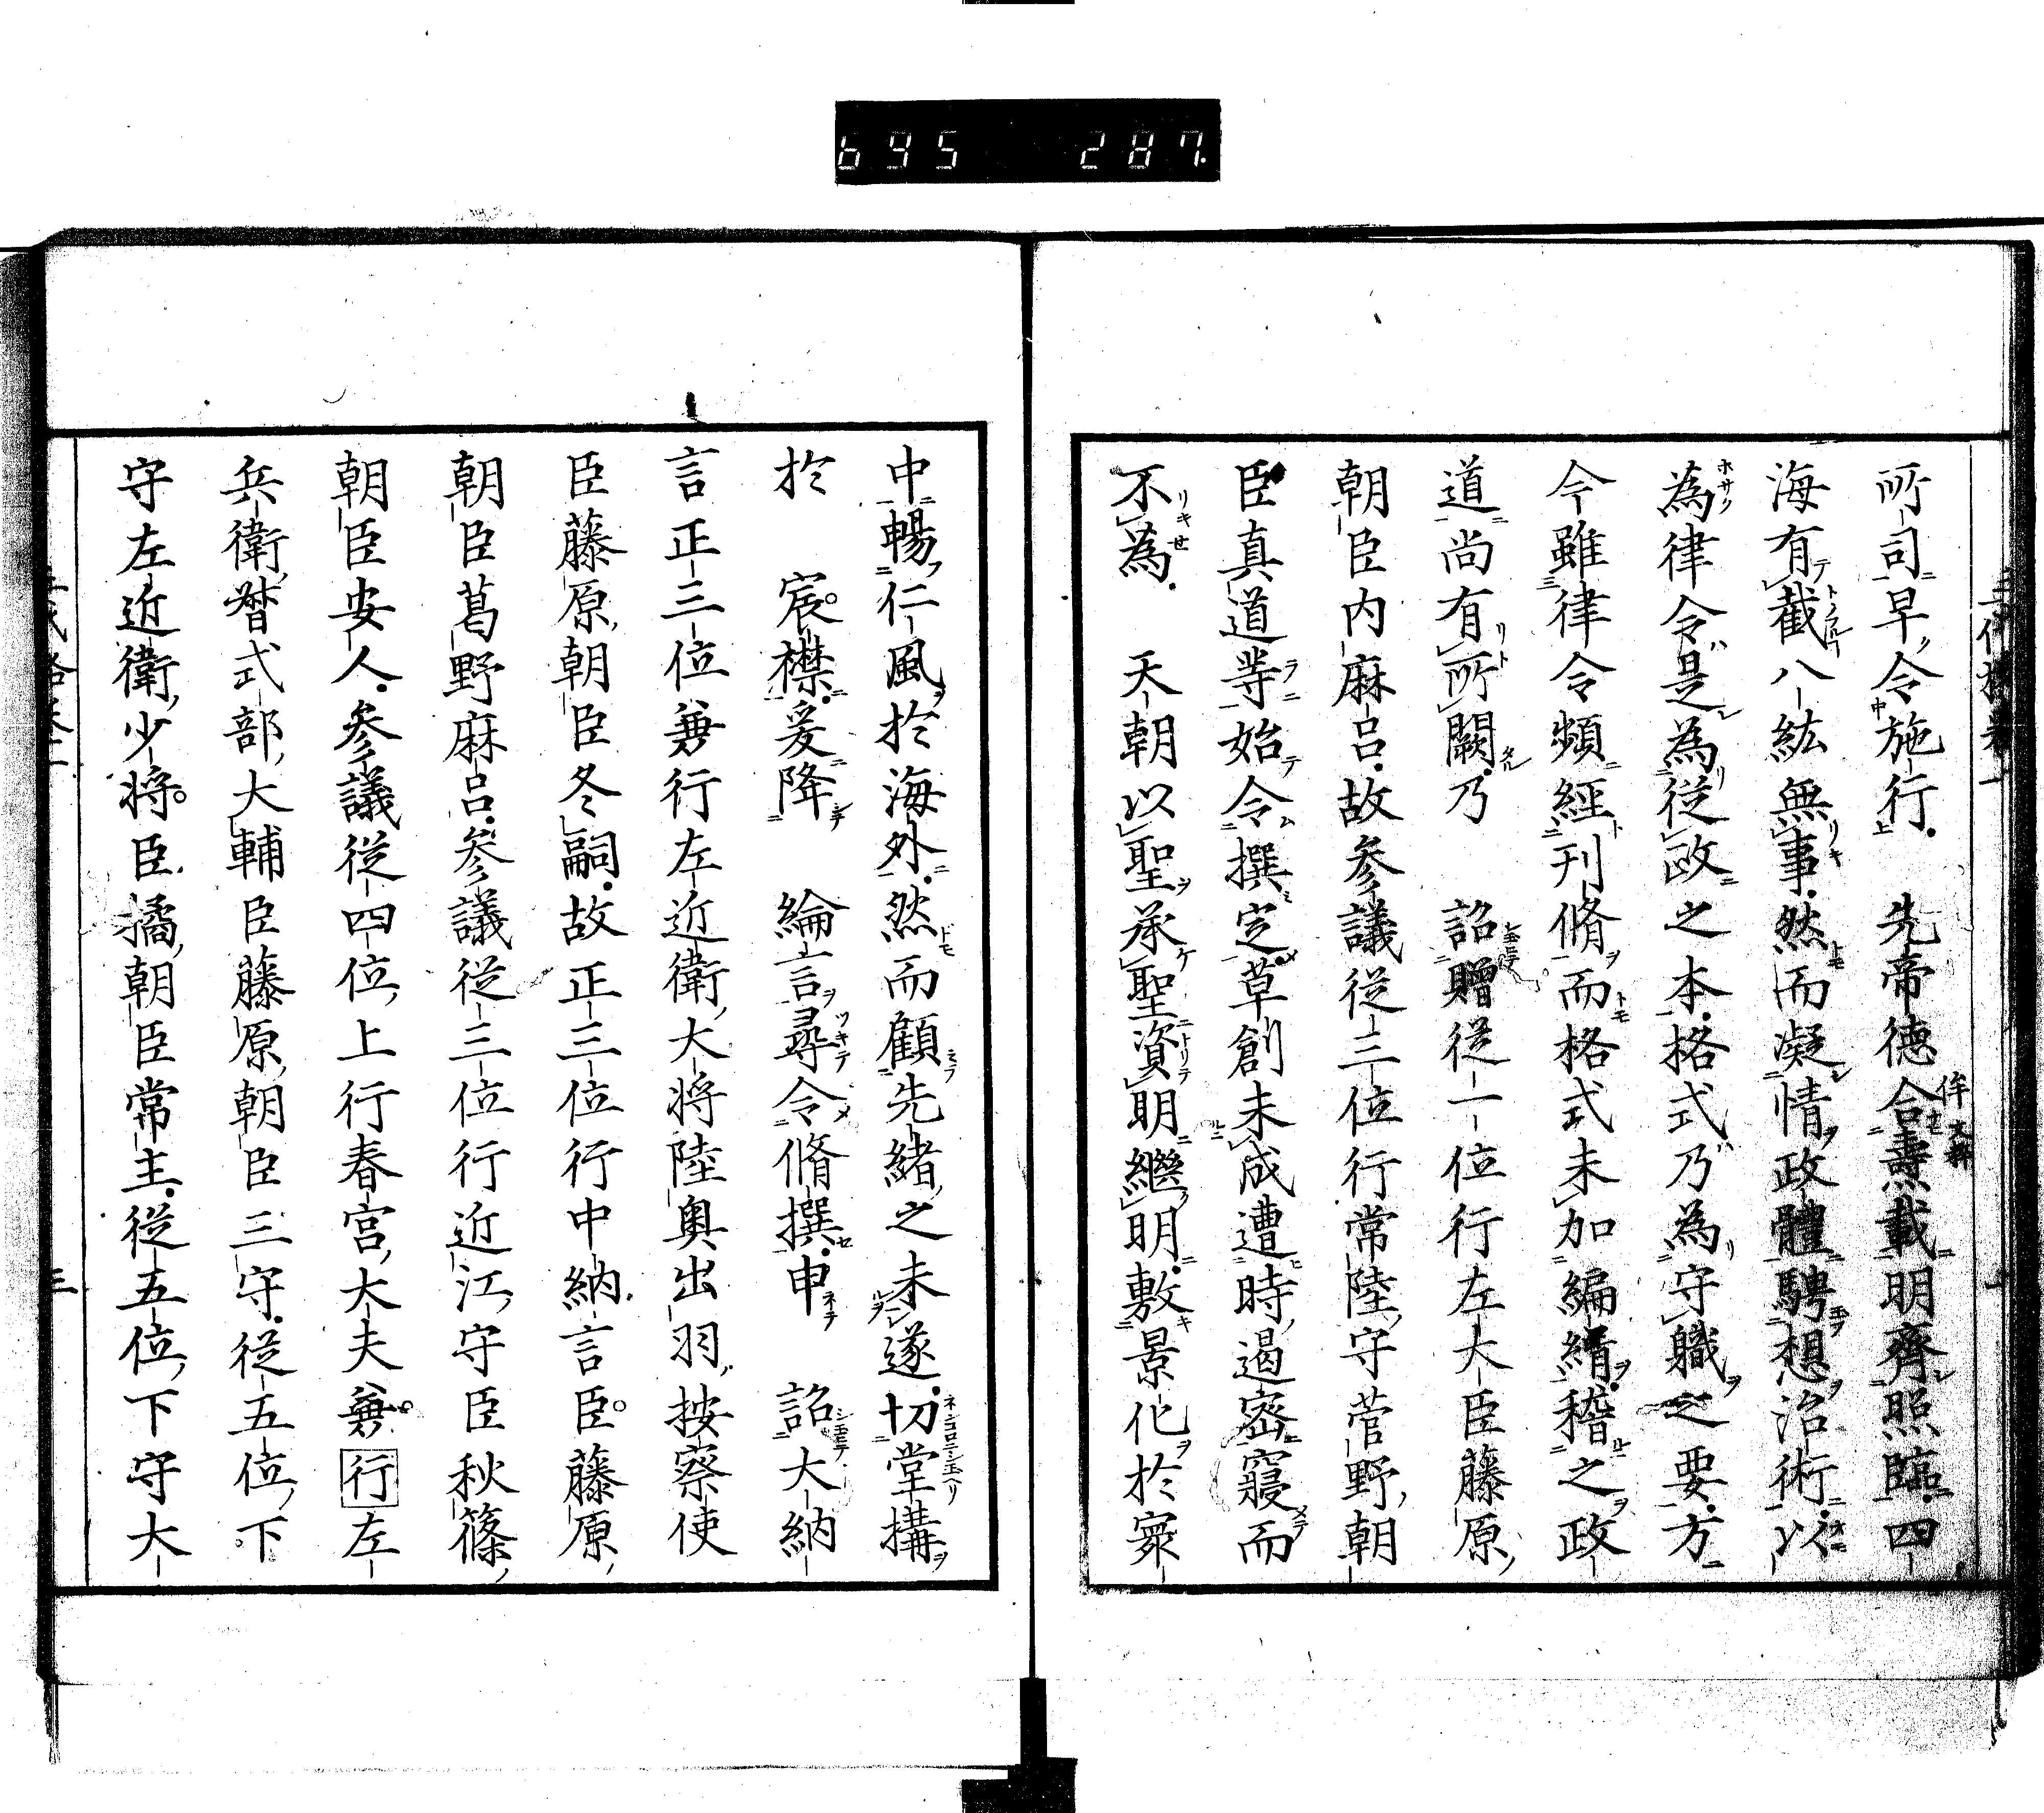 695 287.
所司早令施行 先帝德合燾載明齊照臨四
海有截八紘無事然而凝情政體騁想治術以
為律令是為從政之本格式乃為守職之要方
今雖律令頻經刊脩而格式未加編緝稽之政
道尚有所闕乃 詔贈從一位行左大臣藤原
朝臣内麻呂故參議從三位行常陸守菅野朝
臣真道等始令撰定草創未成遭時遏密寢而
不為 天朝以聖承聖資明繼明敷景化於寰
中暢仁風於海外然而顧先緒之未遂切堂搆
於 宸襟爰降 綸言尋令脩撰申 詔大納
言正三位兼行左近衛大将陸奥出羽按察使
臣藤原朝臣冬嗣故正三位行中納言臣藤原
朝臣葛野麻呂參議從三位行近江守臣秋篠
朝臣安人參議從四位上行春宮大夫兼行左
兵衛督式部大輔臣藤原朝臣三守從五位下
守左近衛少将臣橘朝臣常主從五位下守大
三